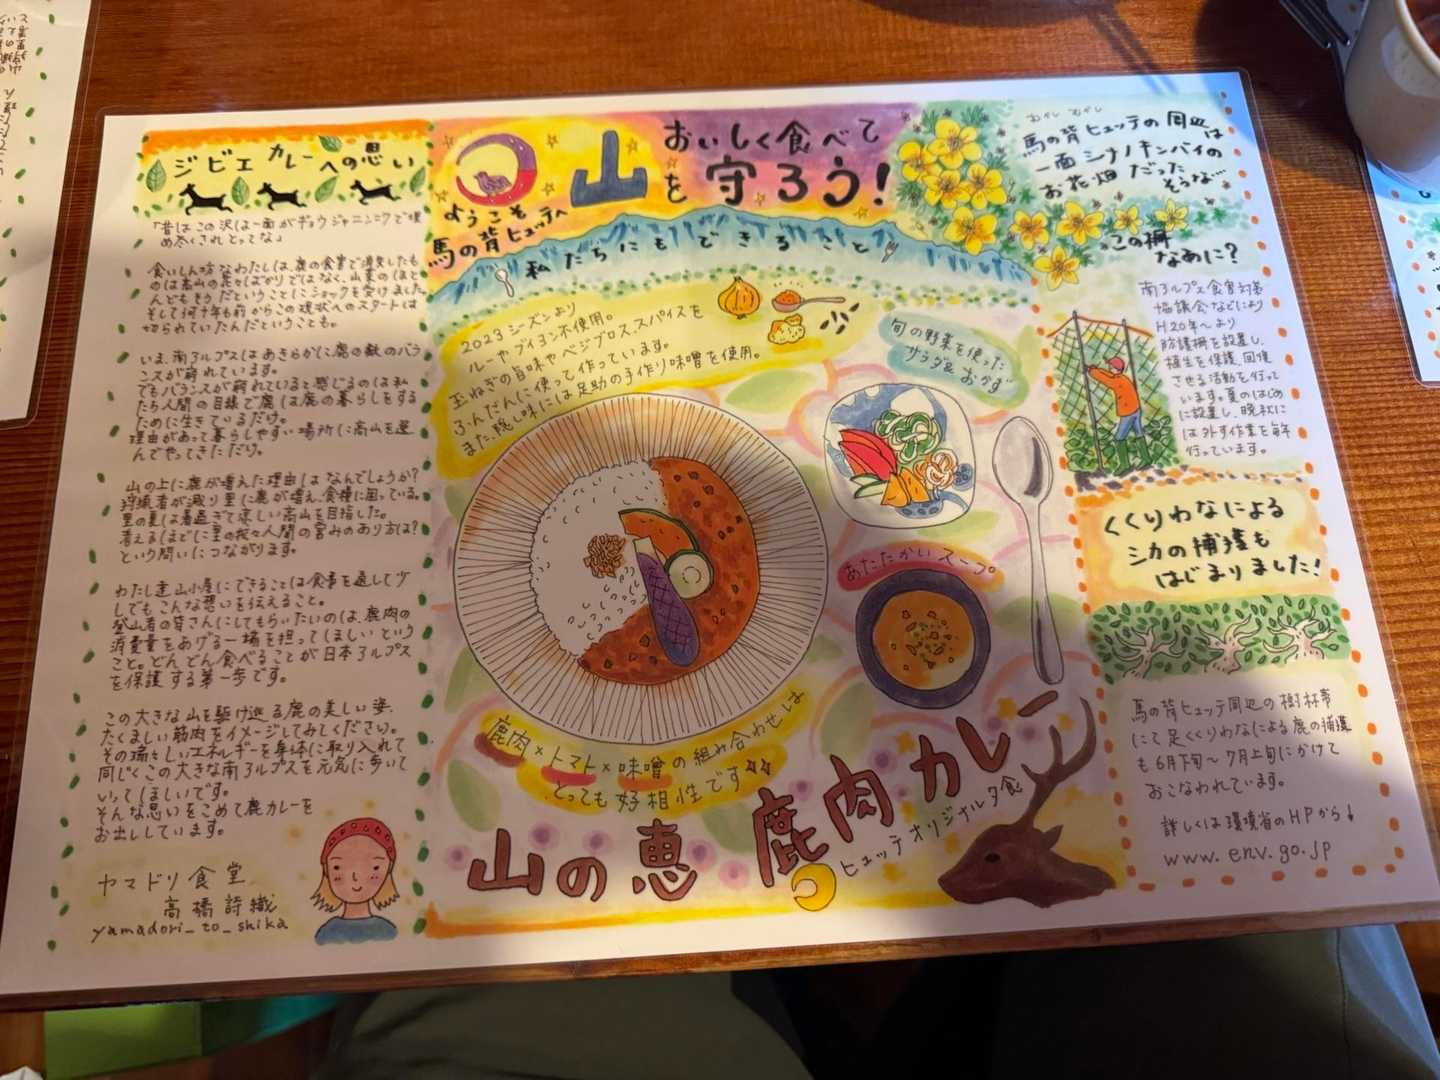 ジビエカレーへの思い
「昔はこの沢は一面がギョウジャニンニクで埋
め尽くされとってな」
食いしん坊なわたしは、鹿の食害で消失したも
のは高山の花々ばかりではなく、山菜のほと
んどもそうだということにショックを受けました。
そして何十年も前からこの現状へのスタートは
切られていたんだということも。
いま、南アルプスはあきらかに鹿の数のバラ
ンスが崩れています。
でもバランスが崩れていると感じるのは私
たち人間の目線で鹿は鹿の暮らしをする
ために生きているだけ。
理由があって暮らしやすい場所に高山を選
んでやってきただけ。
山の上に鹿が増えた理由はなんでしょうか?
狩猟者が減り里に鹿が増え、食糧に困っている。
里の夏は暑過ぎて涼しい高山を目指した。
考えるほどに里の我々人間の営みのあり方は?
という問いにつながります。
わたし達山小屋にできることは食事を通して少
しでもこんな想いを伝えること。
登山者の皆さんにしてもらいたいのは、鹿肉の
消費量をあげる一端を担ってほしいという
こと。どんどん食べることが日本アルプス
を保護する第一歩です。
この大きな山を駆け巡る鹿の美しい姿、
たくましい筋肉をイメージしてみてください。
その瑞々しいエネルギーを身体に取り入れて
同じくこの大きな南アルプスを元気に歩いて
いってほしいです。
そんな思いをこめて鹿カレーを
お出ししています。
ヤマドリ食堂
高橋詩織
yamadori_to_shika
ようこそ
馬の背ヒュッテへ
おいしく食べて
山を守ろう!
私たちにもできること
2023シーズンより
ルーやブイヨン不使用。
玉ねぎの旨味やベジブロス、スパイスを
ふんだんに使って作っています。
また、隠し味には足助の手作り味噌を使用。
旬の野菜を使った
サラダ&おかず
あたたかいスープ
鹿肉×トマト×味噌の組み合わせは
とっても好相性です☆☆
山の恵 鹿肉カレー
ヒュッテオリジナル夕食
むかしむかし
馬の背ヒュッテの周辺は
一面シナノキンバイの
お花畑だった
そうな…
この柵
なあに?
南アルプス食害対策
協議会などにより
H20年〜より
防護柵を設置し、
植生を保護、回復
させる活動を行って
います。夏のはじめ
に設置し、晩秋に
は外す作業を毎年
行っています。
くくりわなによる
シカの捕獲も
はじまりました!
馬の背ヒュッテ周辺の樹林帯
にて足くくりわなによる鹿の捕獲
も6月下旬〜7月上旬にかけて
おこなわれています。
詳しくは環境省のHPから↓
www.env.go.jp